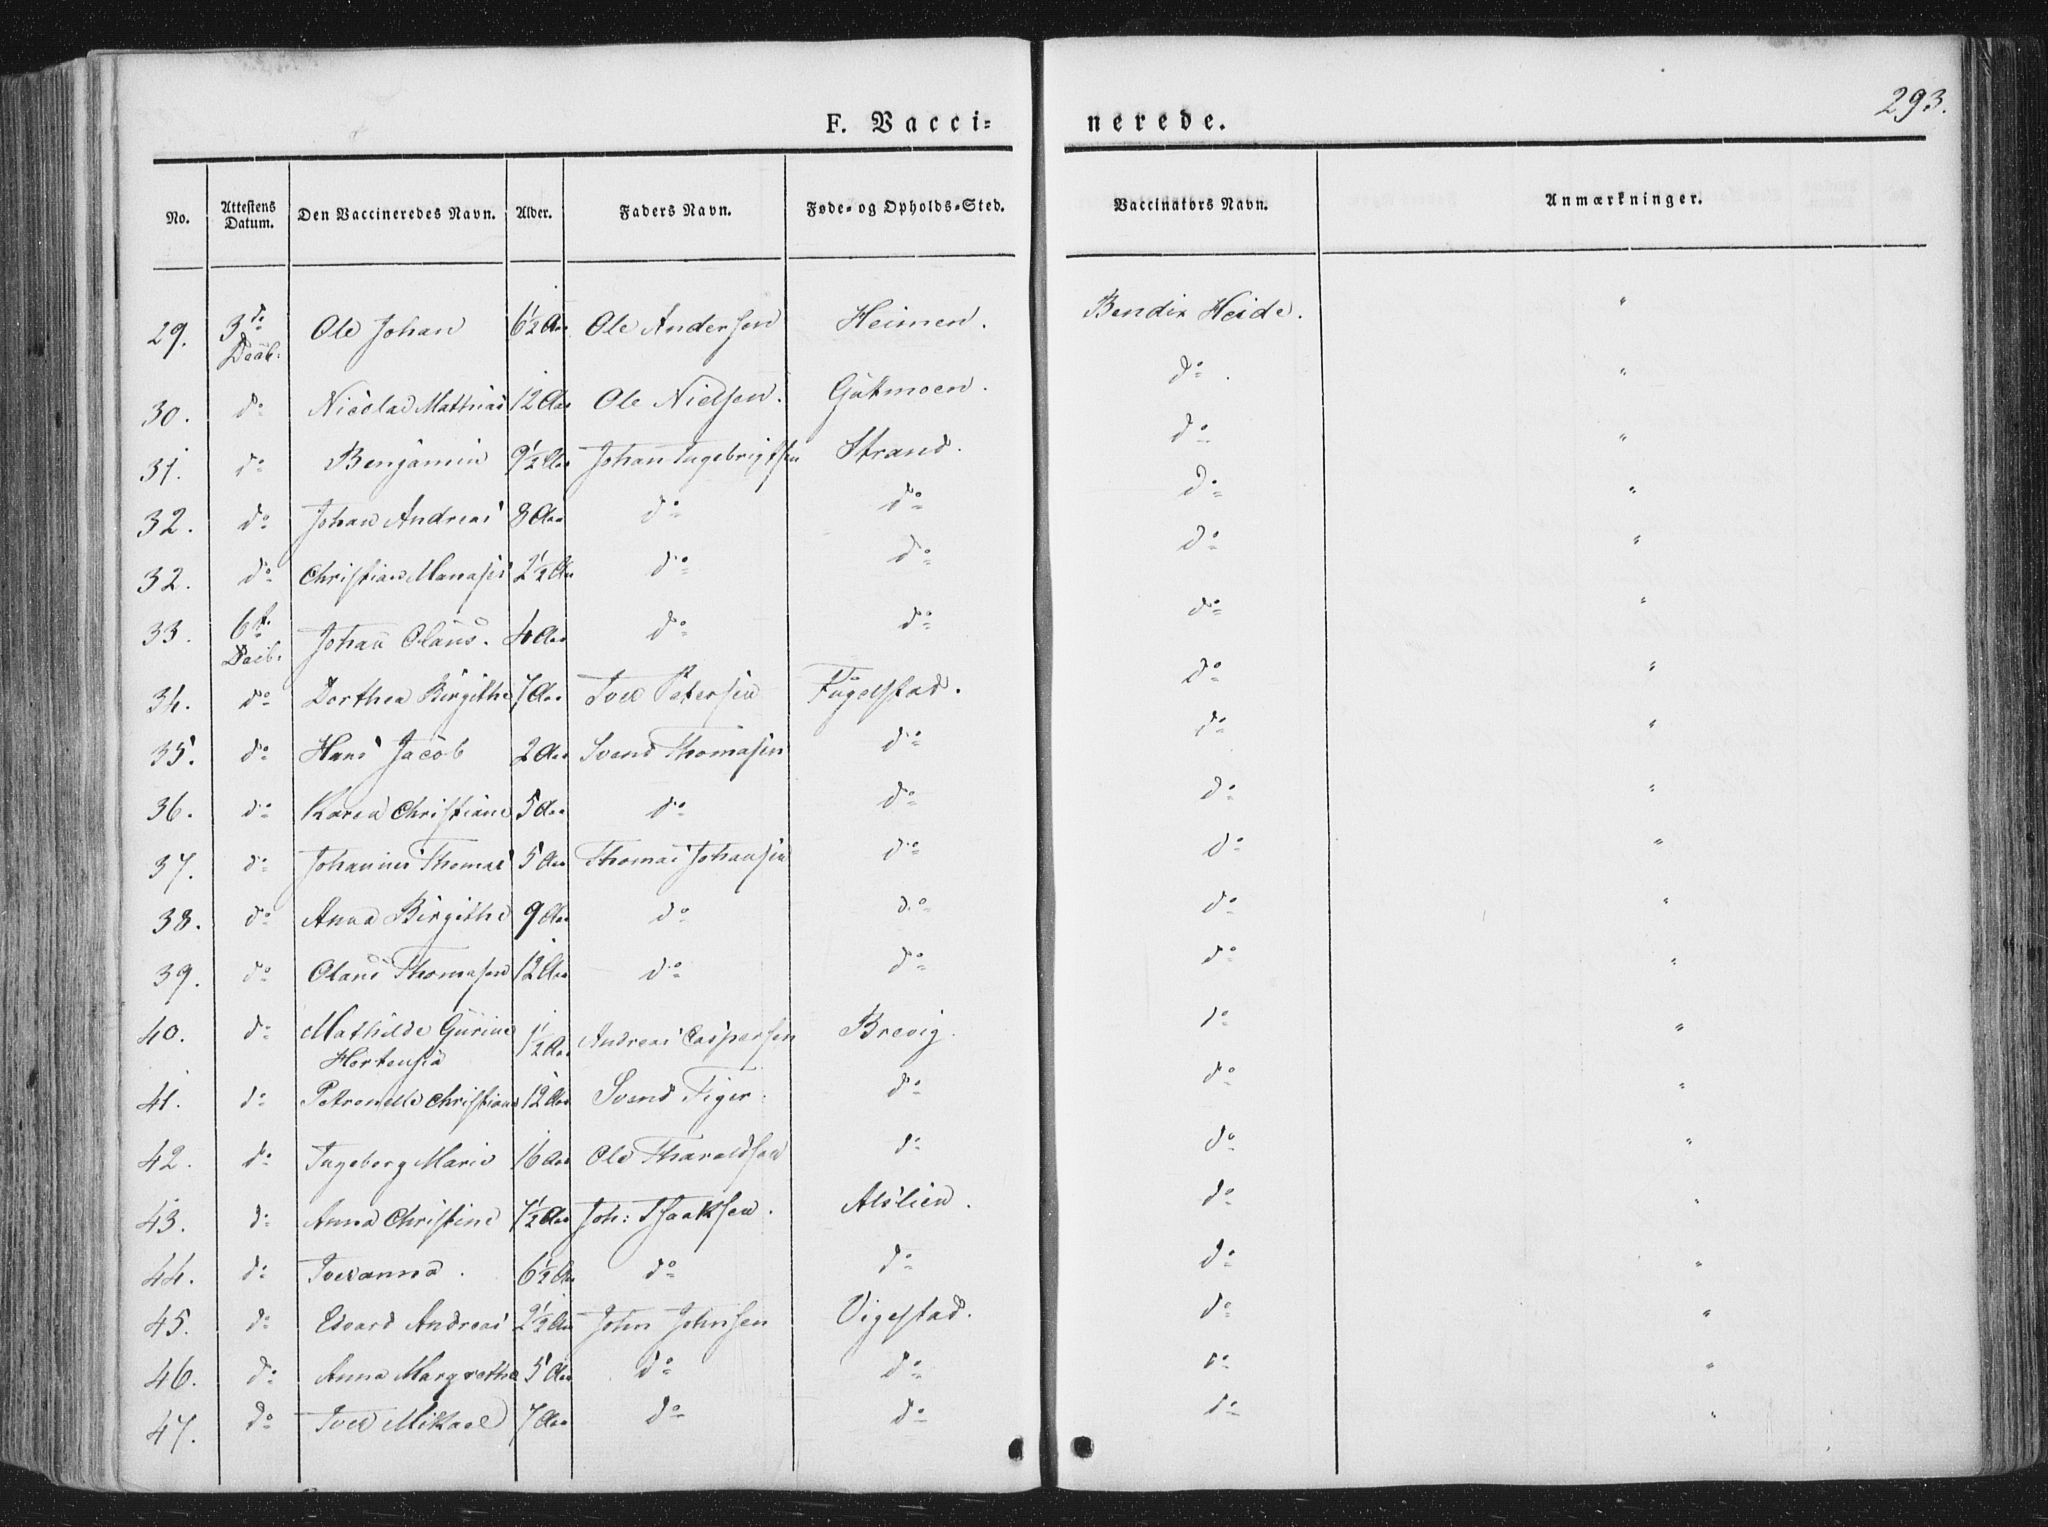 293.
F. Vacci= nerede.
No. Attestens Datum. Den Vaccineredes Navn. Alder. Faders Navn. Føde= og Opholds=Sted. Vaccinators Navn. Anmærkninger.
29. 3die Ole Johan 6½ Aar Ole Andersen Heimen. Bendix Heide. "
30. do Nicolai Mathias 12 Aar Ole Nielsen. Gutmoen. do. "
31. do Benjamin 9½ Aar Johan Ingebrigtsen Strand. do "
32. do Johan Andreas 8 Aar do do do "
32. do Christian Manases 2½ Aar do do do "
33. 6te Johan Olaus. 4 Aar do do do "
34. do Dorthea Birgithe 7 Aar Iver Petersen Fugelstad. do "
35. do Hans Jacob 2 Aar Svend Thomasen do do "
36. do Karen Christiane 5 Aar do do do "
37. do Johannes Thomas 5 Aar Thomas Johansen do do "
38. do Anna Birgithe 9 Aar do do do "
39. do Olaus Thomasen 12 Aar do do do "
40. do Mathilde Gurine 1½ Aar Andreas Caspersen Brevig. do "
Hortensia
41. do Petronelle Christiane 12 Aar Svend Figer. do do "
42. do Ingeborg Marie 16 Aar Ole Tharaldsen do do "
43. do Anna Christine 7½ Aar Joh: Isaaksen. Alslien. do "
44. do Iveranna. 6½ Aar do do do "
45. do Edvard Andreas 2½ Aar John Johnsen Vigestad. do "
46. do Anna Margrethe 5 Aar do do do "
47. do Iver Mikael 7 Aar do do do "